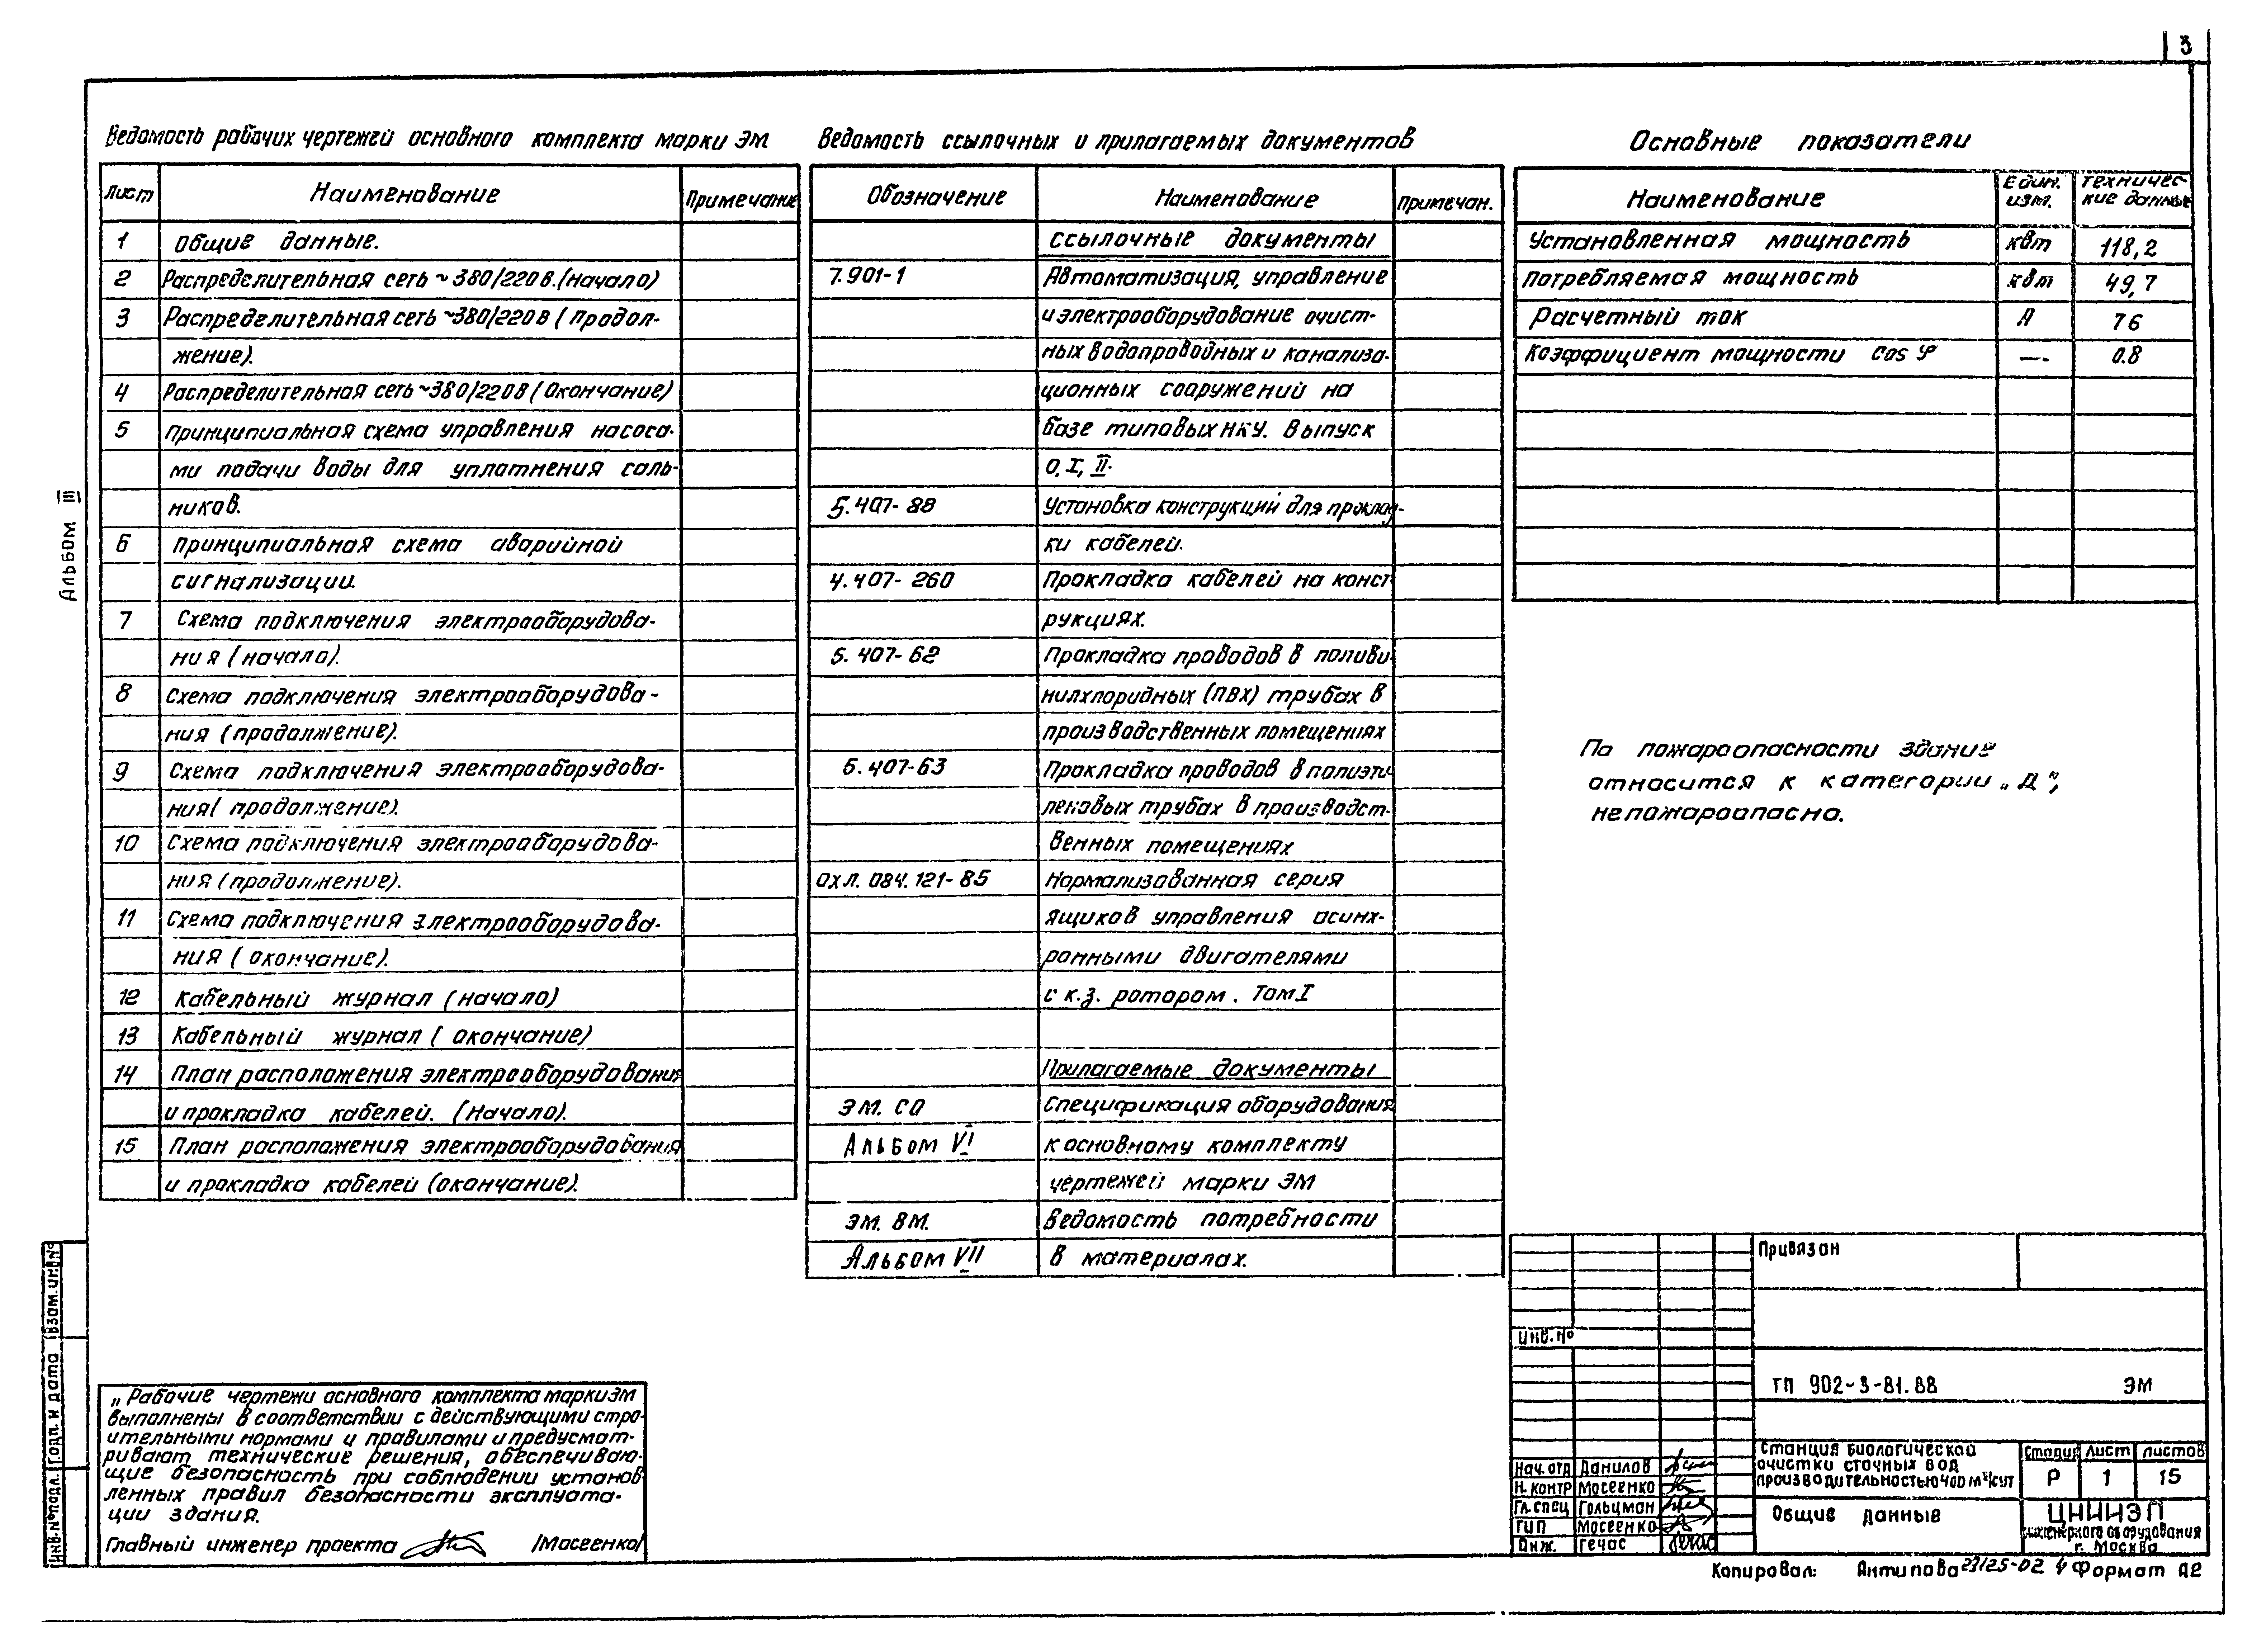 3
Ведомость рабочих чертежей основного комплекта марки ЭМ
Лист Наименование Примечание
1 Общие данные.
2 Распределительная сеть ~380/220в.(начало)
3 Распределительная сеть ~380/220в (продол-
жение).
4 Распределительная сеть ~380/220в (окончание)
5 Принципиальная схема управления насоса-
ми подачи воды для уплотнения саль-
ников.
6 Принципиальная схема аварийной
сигнализации.
7 Схема подключения электрооборудова-
ния (начало).
8 Схема подключения электрооборудова-
ния (продолжение).
9 Схема подключения электрооборудова-
ния (продолжение).
10 Схема подключения электрооборудова-
ния (продолжение).
11 Схема подключения электрооборудова-
ния (окончание).
12 Кабельный журнал (начало)
13 Кабельный журнал (окончание)
14 План расположения электрооборудования
и прокладка кабелей. (Начало).
15 План расположения электрооборудования
и прокладка кабелей (окончание).
Ведомость ссылочных и прилагаемых документов
Обозначение Наименование Примечан.
Ссылочные документы
7.901-1 Автоматизация, управление
и электрооборудование очист-
ных водопроводных и канализа-
ционных сооружений на
базе типовых НКУ. Выпуск
0, I, II.
5.407-88 Установка конструкций для проклад-
ки кабелей.
4.407-260 Прокладка кабелей на конст-
рукциях.
5.407-62 Прокладка проводов в поливи-
нилхлоридных (ПВХ) трубах в
производственных помещениях
5.407-63 Прокладка проводов в полиэти-
леновых трубах в производст-
венных помещениях
ОХЛ.084.121-85 Нормализованная серия
ящиков управления асинх-
ронными двигателями
с к.з. ротором. Том I
Прилагаемые документы
ЭМ. СО Спецификация оборудования
Альбом VI к основному комплекту
чертежей марки ЭМ
ЭМ. ВМ. Ведомость потребности
Альбом VII в материалах.
Основные показатели
Наименование Един. изм. Техничес-
кие данные
Установленная мощность квт 118,2
Потребляемая мощность квт 49,7
Расчетный ток А 76
Коэффициент мощности cos φ —.— 0.8
По пожароопасности здание
относится к категории „Д",
непожароопасно.
Альбом III
Инв.№подл. Подп. и дата Взам.инв.№
„Рабочие чертежи основного комплекта марки ЭМ
выполнены в соответствии с действующими стро-
ительными нормами и правилами и предусмат-
ривают технические решения, обеспечиваю-
щие безопасность при соблюдении установ-
ленных правил безопасности эксплуата-
ции здания.
Главный инженер проекта /Мосеенко/
Привязан
Инв.№
ТП 902-3-81.88 ЭМ
Нач.отд Данилов
Н.контр Мосеенко
Гл.спец Гольцман
ГИП Мосеенко
Инж. Гечас
Станция биологической
очистки сточных вод
производительностью 400 м³/сут
Стадия Лист Листов
Р 1 15
Общие данные
ЦНИИЭП
инженерного оборудования
г. Москва
Копировал: Антипова 23125-02 4 Формат А2